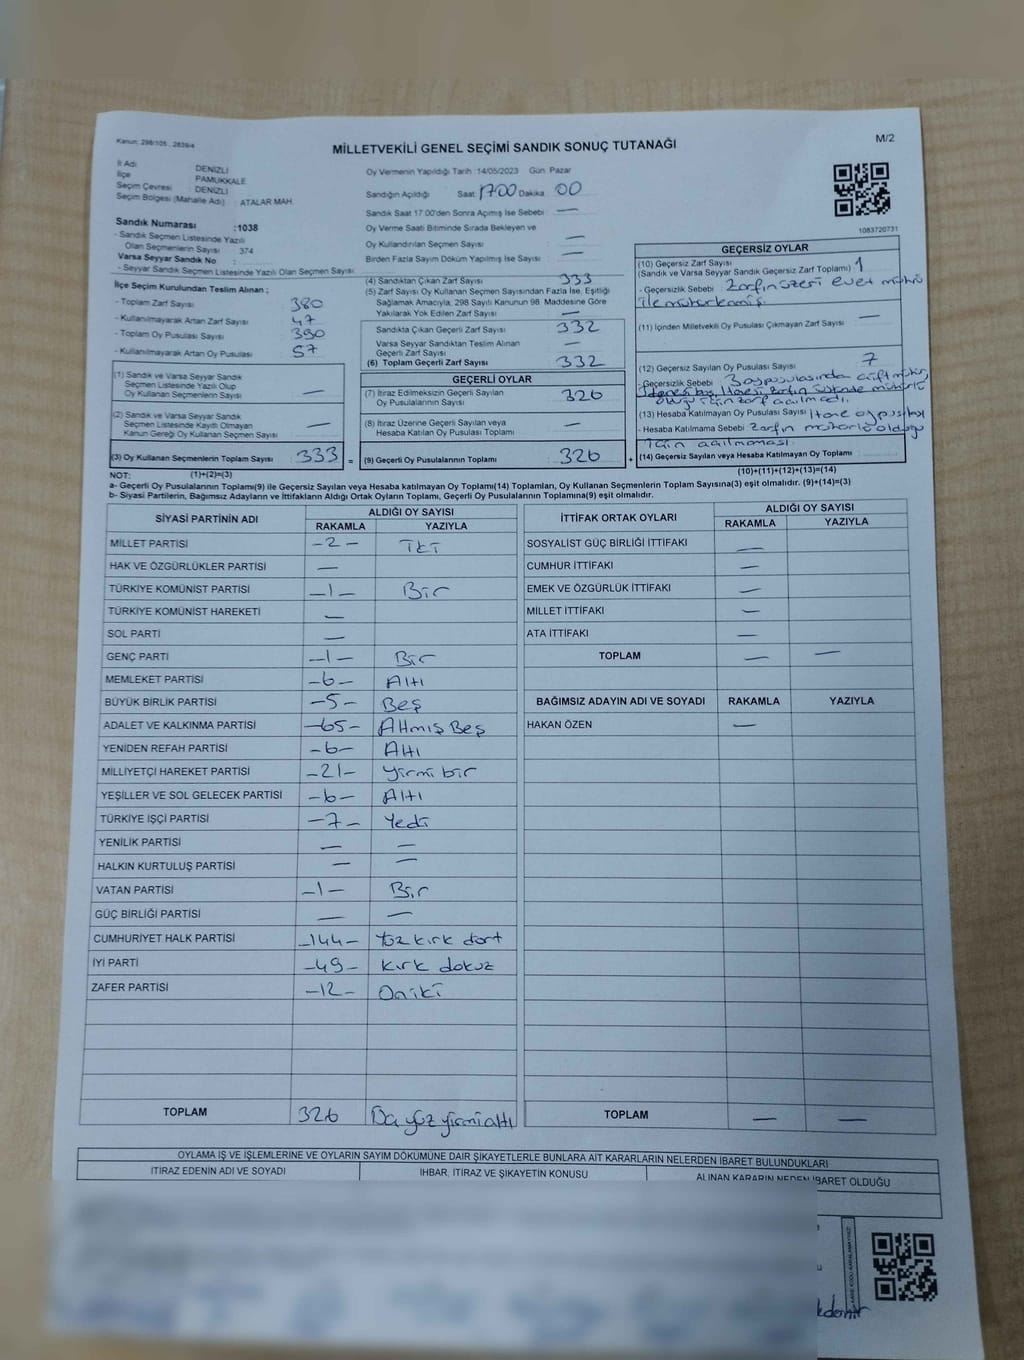 Kanun: 298/105 , 2839/4
MİLLETVEKİLİ GENEL SEÇİMİ SANDIK SONUÇ TUTANAĞI
M/2
İl Adı DENİZLİ
İlçe PAMUKKALE
Seçim Çevresi DENİZLİ
Seçim Bölgesi (Mahalle Adı) : ATALAR MAH.
Sandık Numarası :1038
- Sandık Seçmen Listesinde Yazılı
Olan Seçmenlerin Sayısı : 374
Varsa Seyyar Sandık No :
- Seyyar Sandık Seçmen Listesinde Yazılı Olan Seçmen Sayısı
Oy Vermenin Yapıldığı Tarih :14/05/2023 Gün Pazar
Sandığın Açıldığı Saat 1700 Dakika 00
Sandık Saat 17.00'den Sonra Açımış İse Sebebi —
Oy Verme Saati Bitiminde Sırada Bekleyen ve
Oy Kullandırılan Seçmen Sayısı : —
Birden Fazla Sayım Döküm Yapılmış İse Sayısı —
1083720731
İlçe Seçim Kurulundan Teslim Alınan ;
- Toplam Zarf Sayısı : 380
- Kullanılmayarak Artan Zarf Sayısı : 47
- Toplam Oy Pusulası Sayısı : 390
- Kullanılmayarak Artan Oy Pusulası : 57
(1) Sandık ve Varsa Seyyar Sandık
Seçmen Listesinde Yazılı Olup
Oy Kullanan Seçmenlerin Sayısı —
(2) Sandık ve Varsa Seyyar Sandık
Seçmen Listesinde Kayıtlı Olmayan
Kanun Gereği Oy Kullanan Seçmen Sayısı —
(3) Oy Kullanan Seçmenlerin Toplam Sayısı 333 =
(4) Sandıktan Çıkan Zarf Sayısı 333
(5) Zarf Sayısı Oy Kullanan Seçmen Sayısından Fazla İse, Eşitliği
Sağlamak Amacıyla, 298 Sayılı Kanunun 98. Maddesine Göre
Yakılarak Yok Edilen Zarf Sayısı —
Sandıkta Çıkan Geçerli Zarf Sayısı 332
Varsa Seyyar Sandıktan Teslim Alınan
Geçerli Zarf Sayısı —
(6) Toplam Geçerli Zarf Sayısı 332
GEÇERLİ OYLAR
(7) İtiraz Edilmeksizin Geçerli Sayılan
Oy Pusulalarının Sayısı 326
(8) İtiraz Üzerine Geçerli Sayılan veya
Hesaba Katılan Oy Pusulası Toplamı —
(9) Geçerli Oy Pusulalarının Toplamı 326 +
GEÇERSİZ OYLAR
(10) Geçersiz Zarf Sayısı 1
(Sandık ve Varsa Seyyar Sandık Geçersiz Zarf Toplamı)
- Geçersizlik Sebebi : Zarfın üzeri evet mührü
ile
(11) İçinden Milletvekili Oy Pusulası Çıkmayan Zarf Sayısı —
(12) Geçersiz Sayılan Oy Pusulası Sayısı 7
Geçersizlik Sebebi 3 oy pusulasında çift mühür,
olduğu için zarf açılmadı.
(13) Hesaba Katılmayan Oy Pusulası Sayısı
- Hesaba Katılmama Sebebi Zarfın mühürlü olduğu
için açılmaması
(14) Geçersiz Sayılan veya Hesaba Katılmayan Oy Toplamı
NOT: (1)+(2)=(3) (10)+(11)+(12)+(13)=(14)
a- Geçerli Oy Pusulalarının Toplamı(9) ile Geçersiz Sayılan veya Hesaba katılmayan Oy Toplamı(14) Toplamları, Oy Kullanan Seçmenlerin Toplam Sayısına(3) eşit olmalıdır. (9)+(14)=(3)
b- Siyasi Partilerin, Bağımsız Adayların ve İttifakların Aldığı Ortak Oyların Toplamı, Geçerli Oy Pusulalarının Toplamına(9) eşit olmalıdır.
SİYASİ PARTİNİN ADI ALDIĞI OY SAYISI
RAKAMLA YAZIYLA
MİLLET PARTİSİ -2- İki
HAK VE ÖZGÜRLÜKLER PARTİSİ —
TÜRKİYE KOMÜNİST PARTİSİ -1- Bir
TÜRKİYE KOMÜNİST HAREKETİ —
SOL PARTİ —
GENÇ PARTİ -1- Bir
MEMLEKET PARTİSİ -6- Altı
BÜYÜK BİRLİK PARTİSİ -5- Beş
ADALET VE KALKINMA PARTİSİ -65- Altmış Beş
YENİDEN REFAH PARTİSİ -6- Altı
MİLLİYETÇİ HAREKET PARTİSİ -21- Yirmi bir
YEŞİLLER VE SOL GELECEK PARTİSİ -6- Altı
TÜRKİYE İŞÇİ PARTİSİ -7- Yedi
YENİLİK PARTİSİ — —
HALKIN KURTULUŞ PARTİSİ — —
VATAN PARTİSİ -1- Bir
GÜÇ BİRLİĞİ PARTİSİ — —
CUMHURİYET HALK PARTİSİ -144- Yüz kırk dört
İYİ PARTİ -49- Kırk dokuz
ZAFER PARTİSİ -12- Oniki
TOPLAM 326 yüz yirmi altı
İTTİFAK ORTAK OYLARI ALDIĞI OY SAYISI
RAKAMLA YAZIYLA
SOSYALİST GÜÇ BİRLİĞİ İTTİFAKI —
CUMHUR İTTİFAKI —
EMEK VE ÖZGÜRLÜK İTTİFAKI —
MİLLET İTTİFAKI —
ATA İTTİFAKI —
TOPLAM — —
BAĞIMSIZ ADAYIN ADI VE SOYADI RAKAMLA YAZIYLA
HAKAN ÖZEN —
TOPLAM — —
OYLAMA İŞ VE İŞLEMLERİNE VE OYLARIN SAYIM DÖKÜMÜNE DAİR ŞİKAYETLERLE BUNLARA AİT KARARLARIN NELERDEN İBARET BULUNDUKLARI
İTİRAZ EDENİN ADI VE SOYADI İHBAR, İTİRAZ VE ŞİKAYETİN KONUSU ALINAN KARARIN NEDEN İBARET OLDUĞU